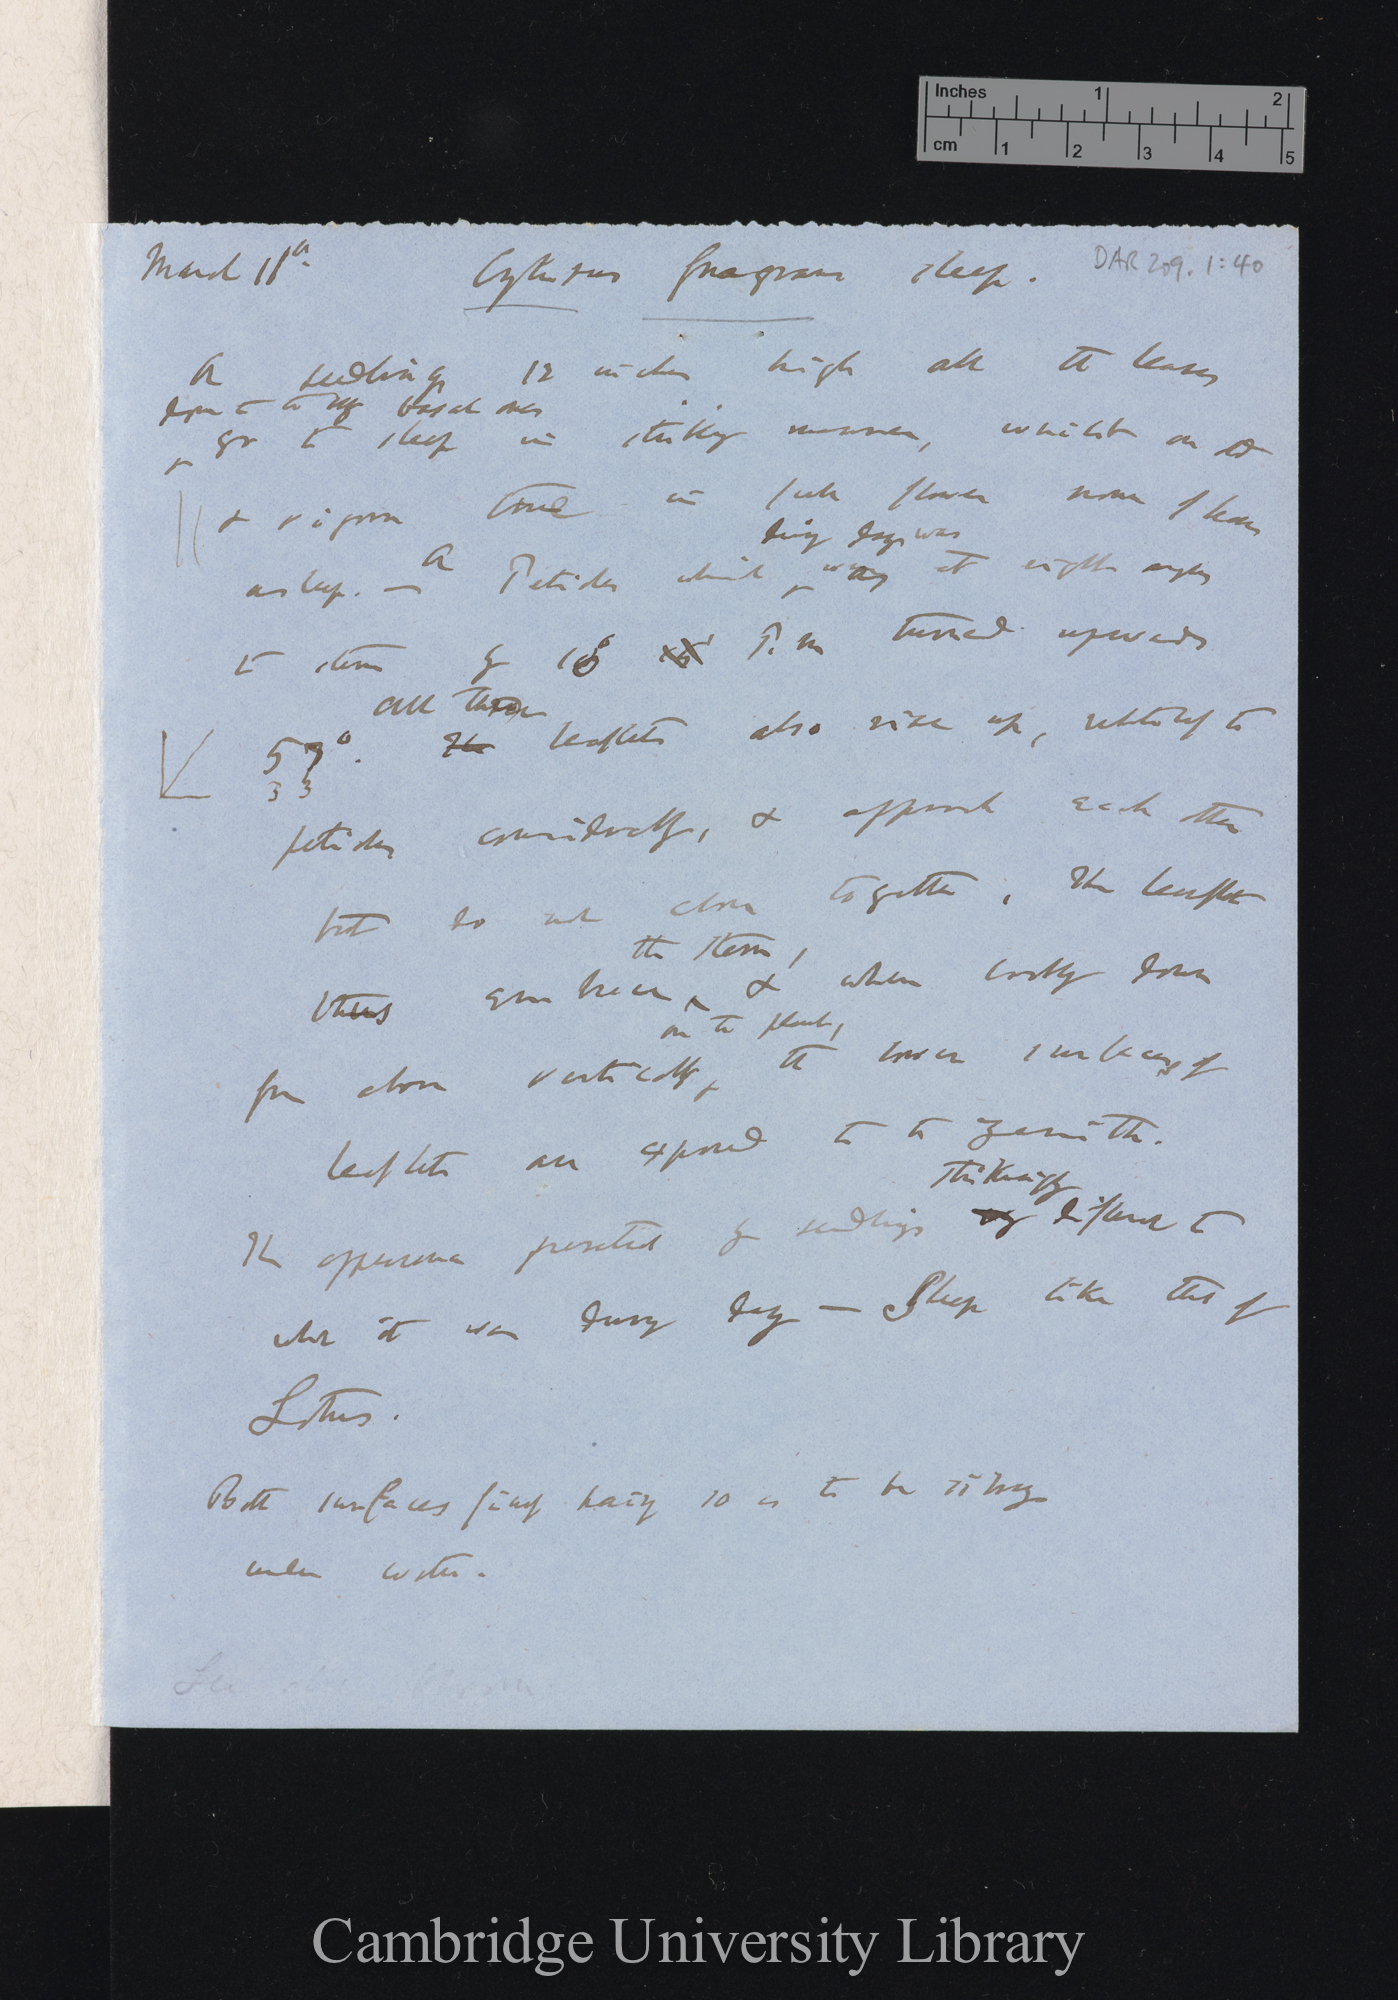 Inches 1 2
cm 1 2 3 4 5
March 11th. Cytisus fragrans sleep. DAR 209.1:40
On seedlings 12 inches high all the leaves
down to the basal ones
go to sleep in striking manner, whilst on old
& vigorous tree in full flower none of leaves
asleep. — A Petiole which
during day was
was at right angles
to stem by 10° P.m turned upwards
all three
57°. The leaflets also rise up, relatively to
33
petioles considerably, & approach each other
but do not close together, The leaflets
the stem,
thus embrace & when looking down
on the plant,
from above vertically, the lower surfaces of
leaflets are exposed to the zenith.
strikingly
The appearance presented by seedlings very different to
what it was during day — Sleep like that of
Lotus.
Both surfaces finely hairy so as to be silvery
under water.
See
Cambridge University Library